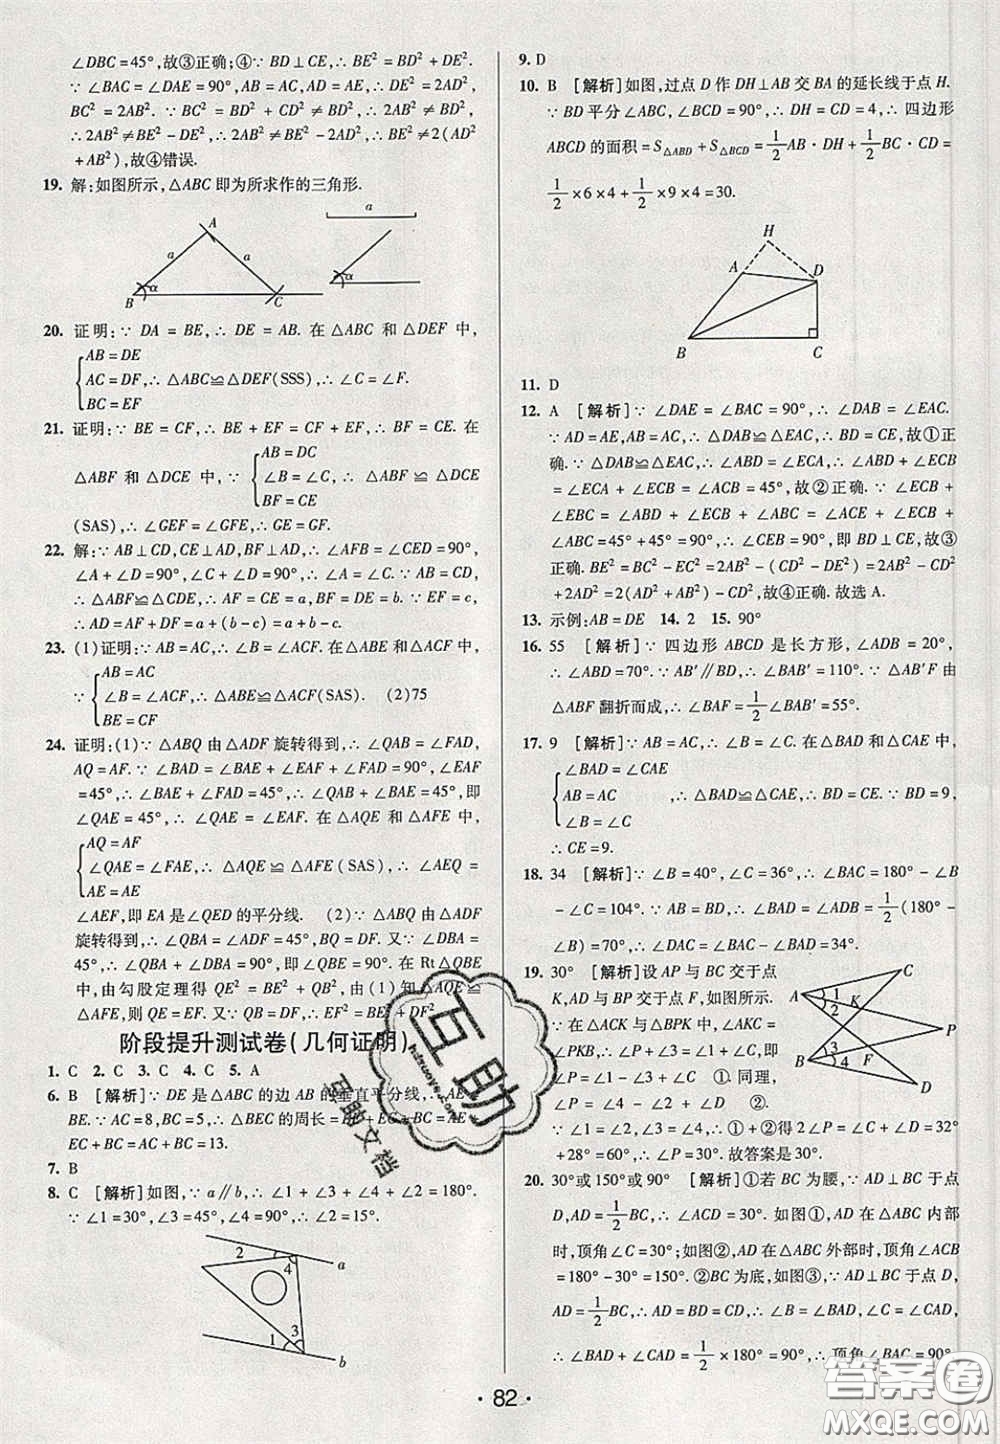 ∠DBC=45°,故③正确;④∵BD⊥CE,∴BE²=BD²+DE².
∵∠BAC=∠DAE=90°,AB=AC,AD=AE,∴DE²=2AD²,
BC²=2AB².∵BC²=BD²+CD²≠BD²,∴2AB²=BD²+CD²≠BD²,
∴2AB²≠BE²-DE²,∴2AB²≠BE²-2AD²,∴BE²≠2(AD²
+AB²),故④错误.
19. 解:如图所示,△ABC即为所求作的三角形.
a
A
a
a
α
B
C
α
20. 证明:∵DA=BE,∴DE=AB.在△ABC和△DEF中,
AB=DE
AC=DF,∴△ABC≌△DEF(SSS),∴∠C=∠F.
BC=EF
21. 证明:∵BE=CF,∴BE+EF=CF+EF,∴BF=CE.在
AB=DC
△ABF和△DCE中,∵∠B=∠C,∴△ABF≌△DCE
BF=CE
(SAS),∴∠GEF=∠GFE,∴GE=GF.
22. 解:∵AB⊥CD,CE⊥AD,BF⊥AD,∴∠AFB=∠CED=90°,
∠A+∠D=90°,∠C+∠D=90°,∴∠A=∠C.∵AB=CD,
∴△ABF≌△CDE,∴AF=CE=a,BF=DE=b.∵EF=c,
∴AD=AF+DF=a+(b-c)=a+b-c.
23. (1)证明:∵AB=AC,∴∠B=∠ACF.在△ABE和△ACF中,
AB=AC
∵∠B=∠ACF,∴△ABE≌△ACF(SAS). (2)75
BE=CF
24. 证明:(1)∵△ABQ由△ADF旋转得到,∴∠QAB=∠FAD,
AQ=AF.∵∠BAD=∠BAE+∠EAF+∠FAD=90°,∠EAF
=45°,∴∠BAE+∠FAD=45°,∴∠BAE+∠QAB=45°,即
∠QAE=45°,∴∠QAE=∠EAF.在△AQE和△AFE中,
AQ=AF
∠QAE=∠FAE,∴△AQE≌△AFE(SAS),∴∠AEQ=
AE=AE
∠AEF,即EA是∠QED的平分线. (2)∵△ABQ由△ADF
旋转得到,∴∠QBA=∠ADF=45°,BQ=DF.又∵∠DBA=
45°,∴∠QBE=∠QBA+∠DBA=90°,∴在Rt△QBE
中,由勾股定理得QE²=BE²+QB²,由(1)知△QAE≌
△FAE,则QE=EF.又∵QB=DF,∴EF²=BE²+DF².
阶段提升测试卷(几何证明)
1. C 2. C 3. C 4. C 5. A
6. B [解析]∵DE是△ABC的边AB的垂直平分线,∴AE=
BE.∵AC=8,BC=5,∴△BEC的周长=BE+EC+BC=AE+
EC+BC=AC+BC=13.
7. B
8. C [解析]如图,∵a∥b,∴∠1+∠3+∠4+∠2=180°.
∵∠1=30°,∠3=45°,∠4=90°,∴∠2=15°.
2
4
a
1
3
b
9. D
10. B [解析]如图,过点D作DH⊥AB交BA的延长线于点H.
∵BD平分∠ABC,∠BCD=90°,∴DH=CD=4,∴四边形
ABCD的面积=S△ABD+S△BCD=1/2AB·DH+1/2BC·CD=
1/2×6×4+1/2×9×4=30.
H
A
D
B
C
11. D
12. A [解析]∵∠DAE=∠BAC=90°,∴∠DAB=∠EAC.
∵AD=AE,AB=AC,∴△DAB≌△EAC,∴BD=CE,故①正
确.∵△DAB≌△EAC,∴∠ABD=∠ECA,∴∠ABD+∠ECB
=∠ECA+∠ECB=∠ACB=45°,故②正确.∵∠ECB+
∠EBC=∠ABD+∠ECB+∠ABC=∠ACE+∠ECB+
∠ABC=45°+45°=90°,∴∠CEB=90°,即BD⊥CE,故③
正确.BE²=BC²-EC²=2AB²-(CD²-DE²)=2AB²-CD²
+2AD²=2(AD²+AB²)-CD²,故④正确.故选A.
13. 示例:AB=DE 14. 2 15. 90°
16. 55 [解析]∵四边形ABCD是长方形,∠ADB=20°,
∴∠ABD=70°.∵AB′∥BD,∴∠BAB′=110°.∵△AB′F由
△ABF翻折而成,∴∠BAF=1/2∠BAB′=55°.
17. 9 [解析]∵AB=AC,∴∠B=∠C.在△BAD和△CAE中,
∠BAD=∠CAE
AB=AC ,∴△BAD≌△CAE,∴BD=CE.∵BD=9,
∠B=∠C
∴CE=9.
18. 34 [解析]∵∠B=40°,∠C=36°,∴∠BAC=180°-∠B
-∠C=104°.∵AB=BD,∴∠BAD=∠ADB=1/2(180°-
∠B)=70°,∴∠DAC=∠BAC-∠BAD=34°.
19. 30° [解析]设AP与BC交于点
K,AD与BP交于点F,如图所示.
∴∠P+∠3=∠C+∠1 ①.同理,
②.
∵∠1=∠2,∠3=∠4,∴①+②得2∠P=∠C+∠D=32°
+28°=60°,∴∠P=30°.故答案是30°.
C
A
1
2
K
P
B
3
4
F
D
20. 30°或150°或90° [解析]①若BC为腰,∵AD⊥BC于点
D,AD=1/2BC,∴∠ACD=30°.如图①,AD在△ABC内部
时,顶角∠C=30°;如图②,AD在△ABC外部时,顶角∠ACB
=180°-30°=150°.②BC为底,如图③,∵AD⊥BC于点D,
AD=1/2BC,∴AD=BD=CD,∴∠B=∠BAD,∠C=∠CAD,
∴∠BAD+∠CAD=1/2×180°=90°,∴顶角∠BAC=90°
·82·
互助
互助文档
答案圈
MXQE.COM